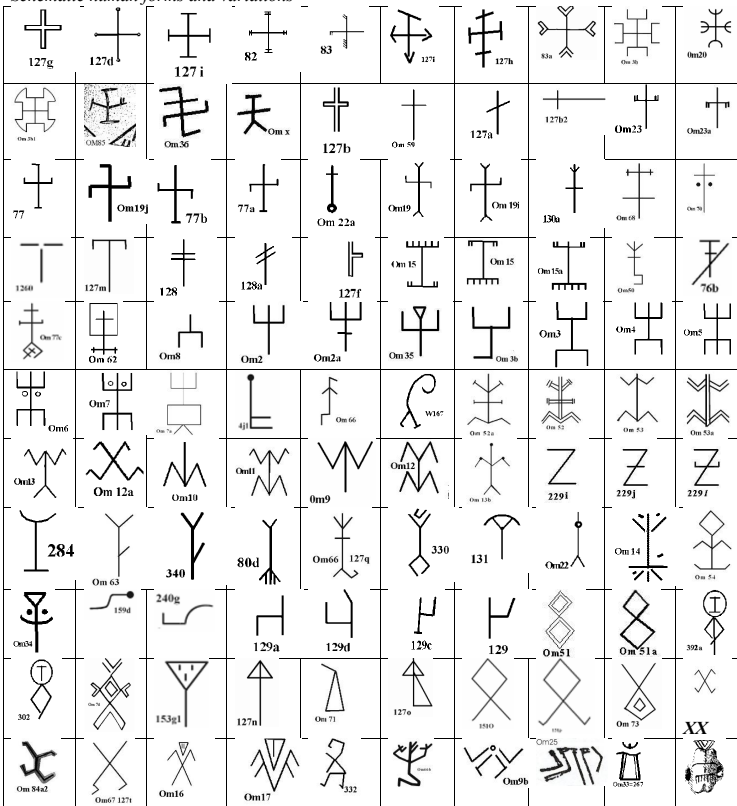 Schematic human forms and variations
127g 127d 127i 82 83 127i 127h 83a Om 3h 0m20
Om 3h1 OM85 Om36 Om x 127b Om 59 127a 127b2 Om23 Om23a
77 Om19j 77b 77a Om 22a Om19 Om 19i 130a Om 68 Om 70
1260 127m 128 128a 127f Om 15 Om 15 Om 15a Om50 76b
Om 77c Om 62 Om8 Om2 Om2a Om 35 Om 3b Om3 Om4 Om5
Om6 Om7 Om 7a 4j1 Om 66 W167 Om 52a Om 52 Om 53 Om 53a
Om13 Om 12a Om10 Om11 0m9 Om12 Om 13b 229i 229j 229l
284 Om 63 340 80d Om66 127q 330 131 Om22 Om 14 Om 54
Om34 159d 240g 129a 129d 129c 129 Om51 Om 51a 392a
302 153g1 127n Om 71 127o 151O Om 73 XX
Om 84a2 Om67 127t Om16 Om17 332 Om9b Om25 Om33=267